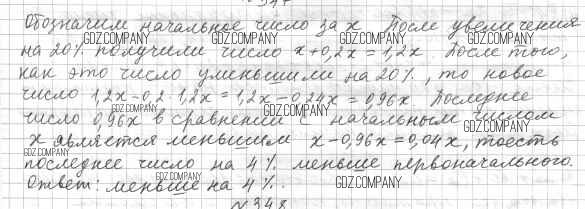 Обозначим начальное число за x После увеличения
на 20% получили число x+0,2x=1,2x. После того,
как это число уменьшили на 20%, то новое
число 1,2x-0,2·1,2x=1,2x-0,24x=0,96x. Последнее
число 0,96x в сравнении с начальным числом
x является меньшим x-0,96x=0,04x, тоесть
последнее число на 4% меньше первоначального.
Ответ: меньше на 4%.
№348
GDZ.COMPANY GDZ.COMPANY GDZ.COMPANY
GDZ.COMPANY
GDZ.COMPANY
GDZ.COMPANY
GDZ.COMPANY
GDZ.COMPANY
GDZ.COMPANY